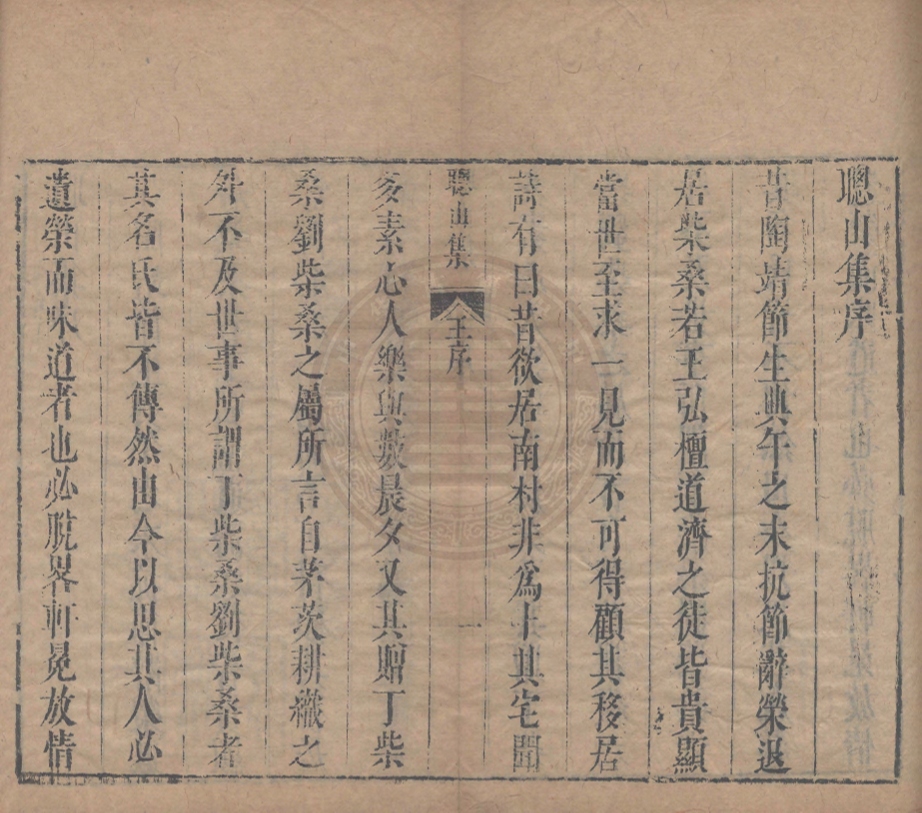 聰山集序
昔陶靖節生典午之末抗節辭榮退
居柴桑若王弘檀道濟之徒皆貴顯
當世至求一見而不可得顧其移居
詩有曰昔欲居南村非爲卜其宅聞
聰山集 王序 一
多素心人樂與數晨夕又其贈丁柴
桑劉柴桑之屬所言自茅茨耕織之
外不及世事所謂丁柴桑劉柴桑者
其名氏皆不傳然由今以思其人必
遺榮而味道者也必脫畧軒冕放情